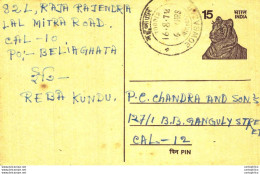 82L, RAJA RAJENDRA
LAL MITRA ROAD.
CAL-10.
PO:- BELIAGHATA
ইতি-
REBA KUNDU.
16-8-78
15
भारत
INDIA
P.C. CHANDRA AND SONS
127/1 B.B. GANGULY STREET
CAL-12
पिन PIN